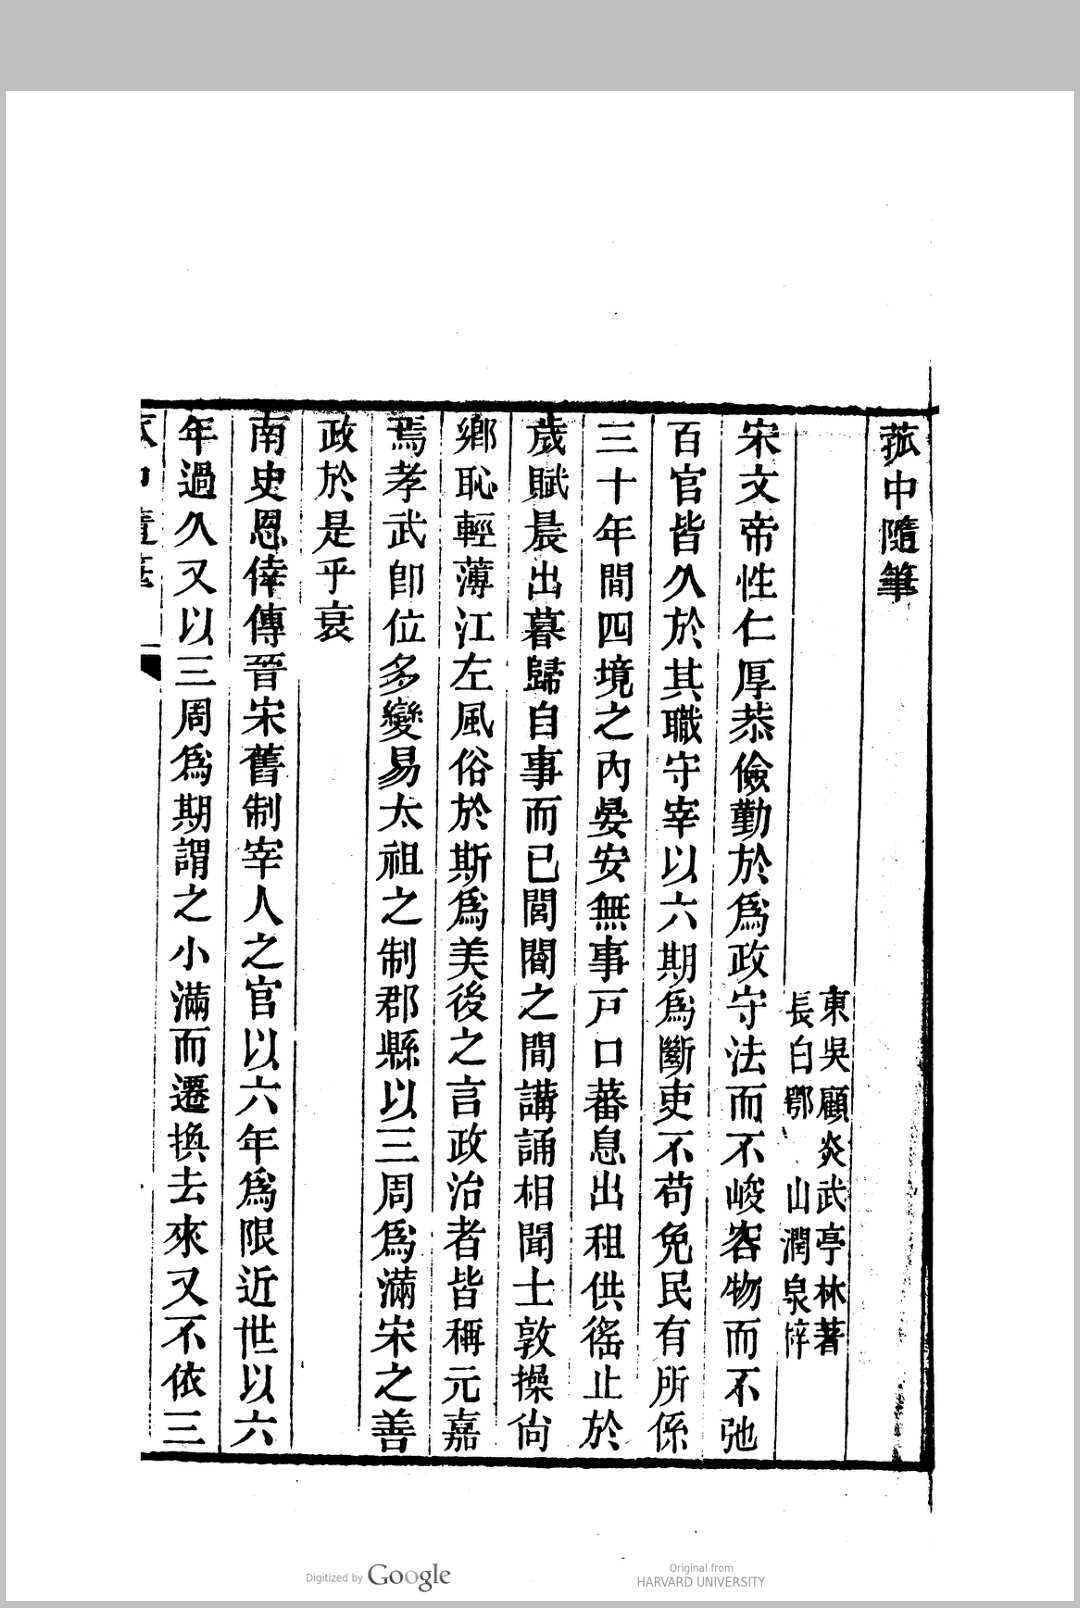 菰中隨筆
東吳顧炎武亭林著
長白鄂山潤泉梓
宋文帝性仁厚恭儉勤於爲政守法而不峻容物而不弛
百官皆久於其職守宰以六期爲斷吏不苟免民有所係
三十年間四境之內晏安無事戸口蕃息出租供徭止於
歲賦晨出暮歸自事而已閭閻之間講誦相聞士敦操尚
鄉恥輕薄江左風俗於斯爲美後之言政治者皆稱元嘉
焉孝武卽位多變易太祖之制郡縣以三周爲滿宋之善
政於是乎衰
南史恩倖傳晉宋舊制宰人之官以六年爲限近世以六
年過久又以三周爲期謂之小滿而遷換去來又不依三
Digitized by Google
Original from
HARVARD UNIVERSITY